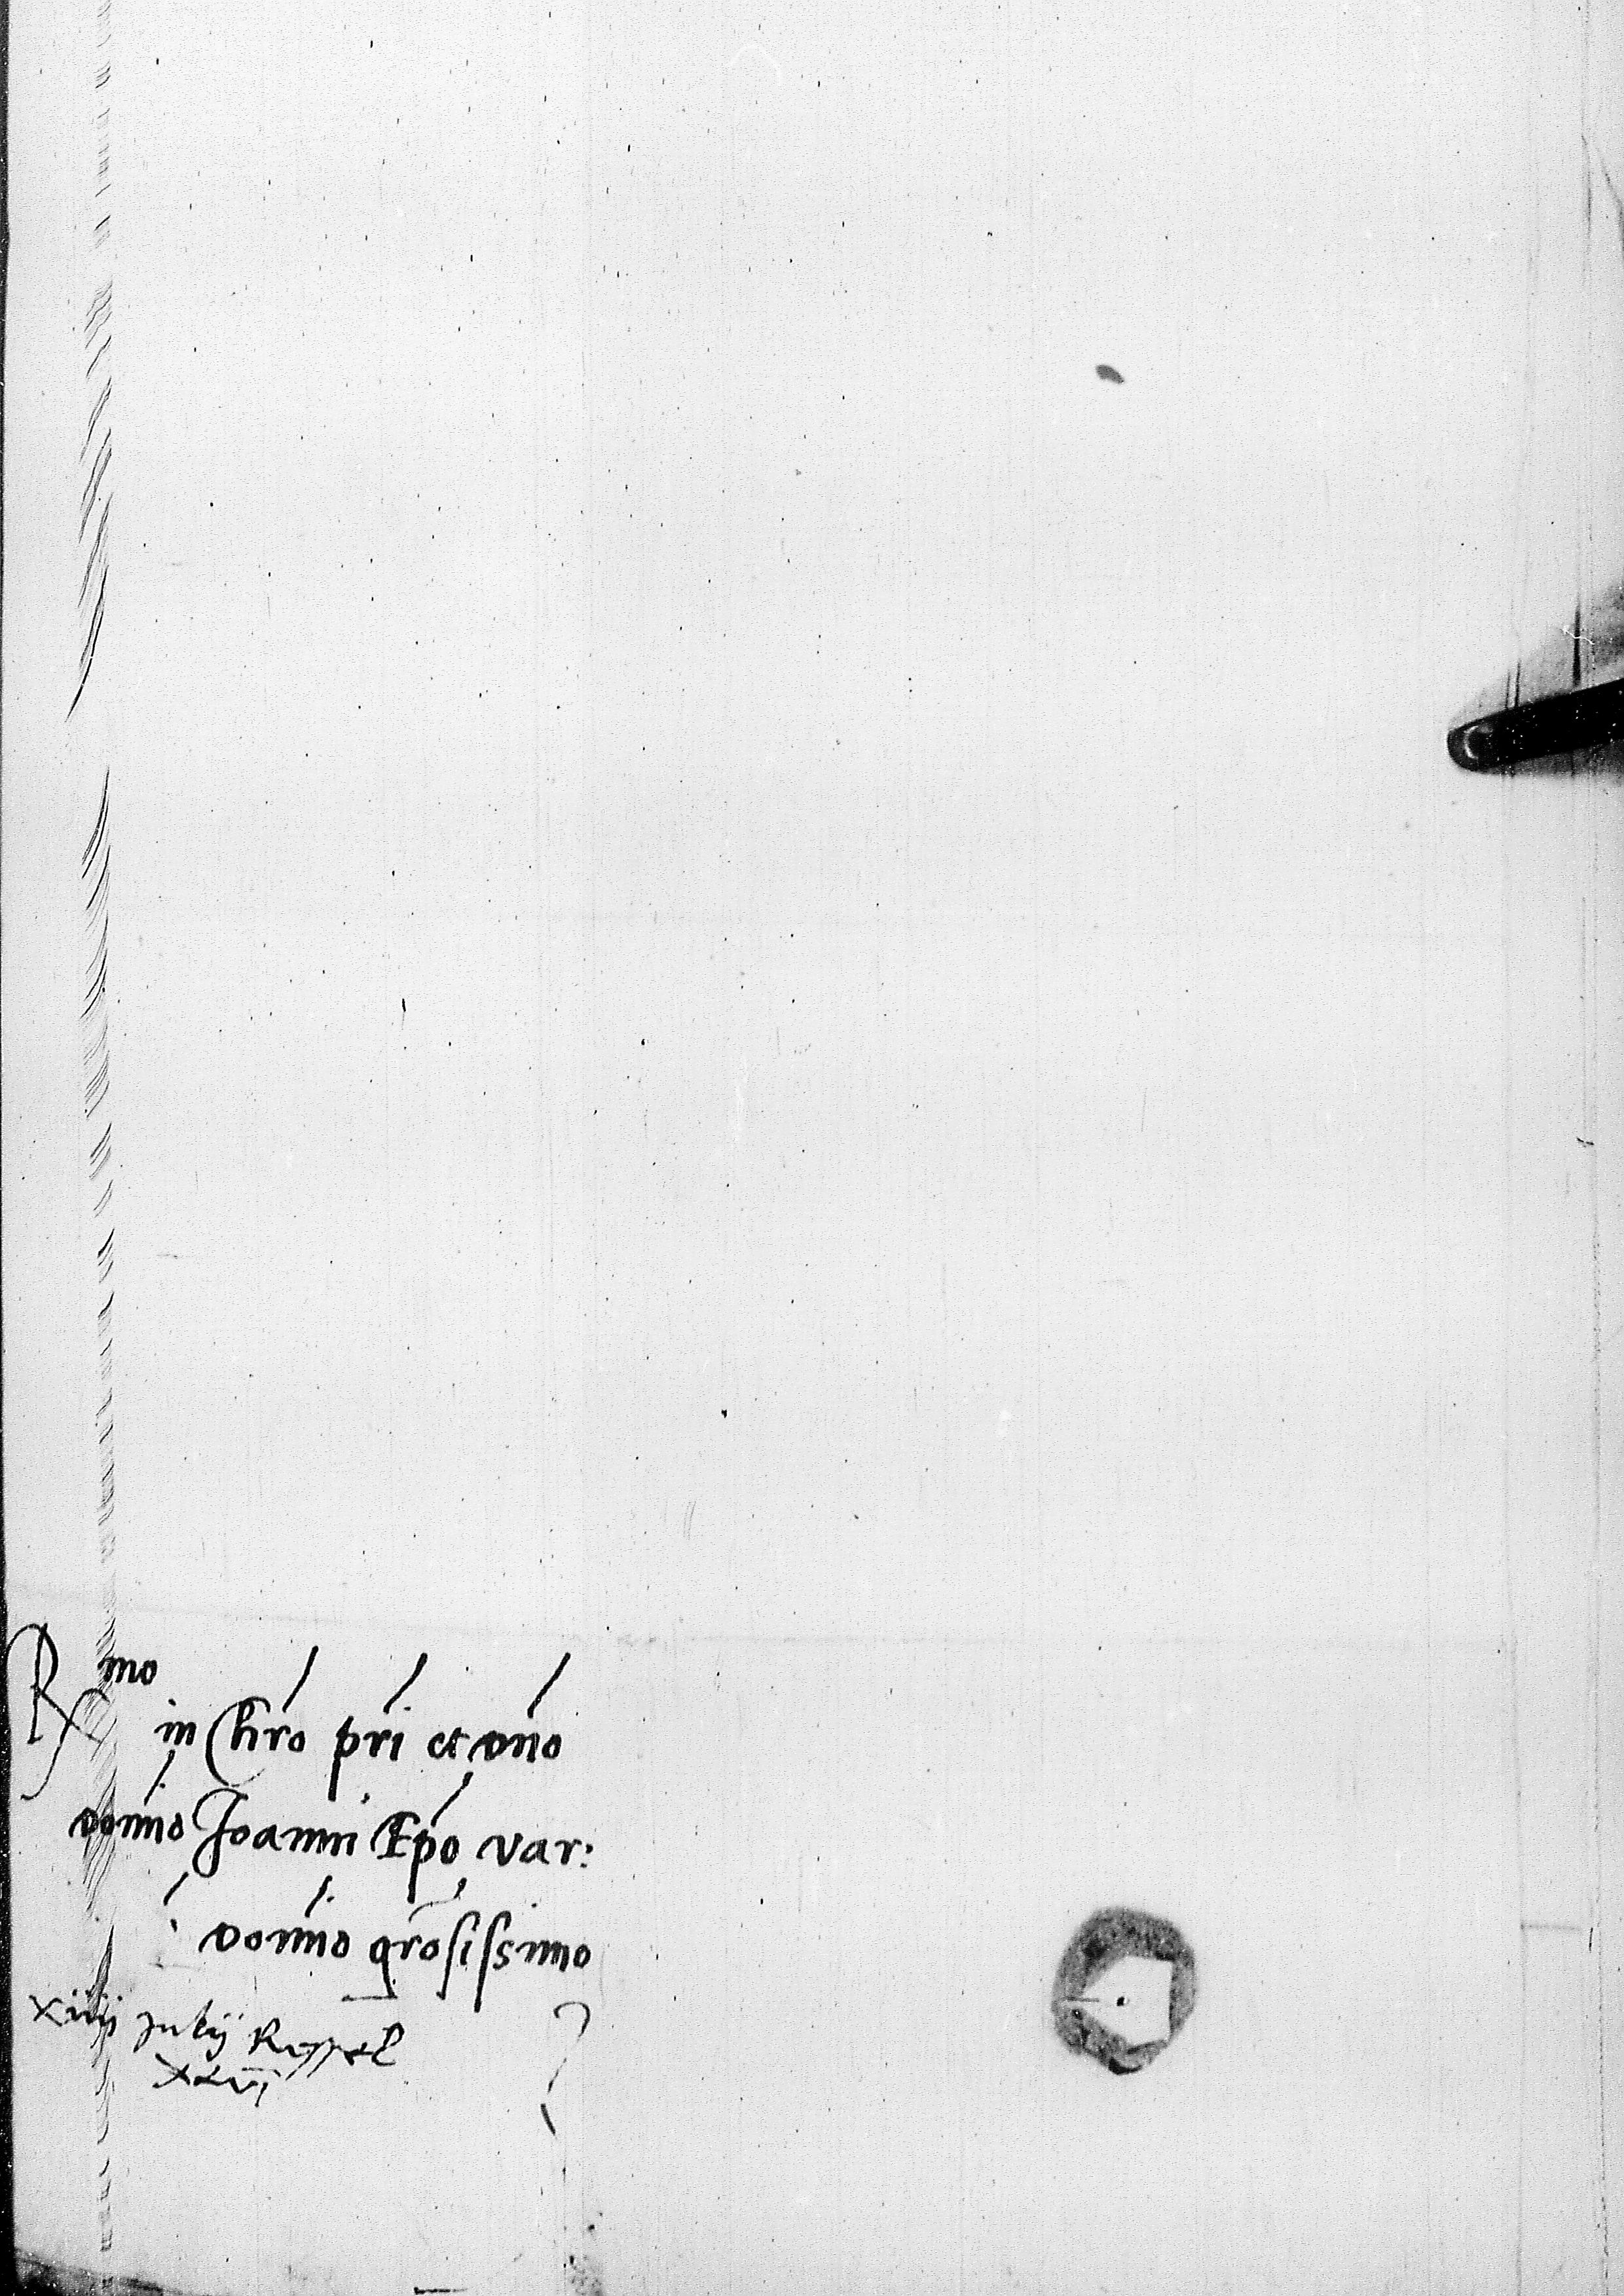 Rmo
in Chro pri et dno
domno Joanni Epo var:
domno grosissimo
xiiij Julij
xxvi